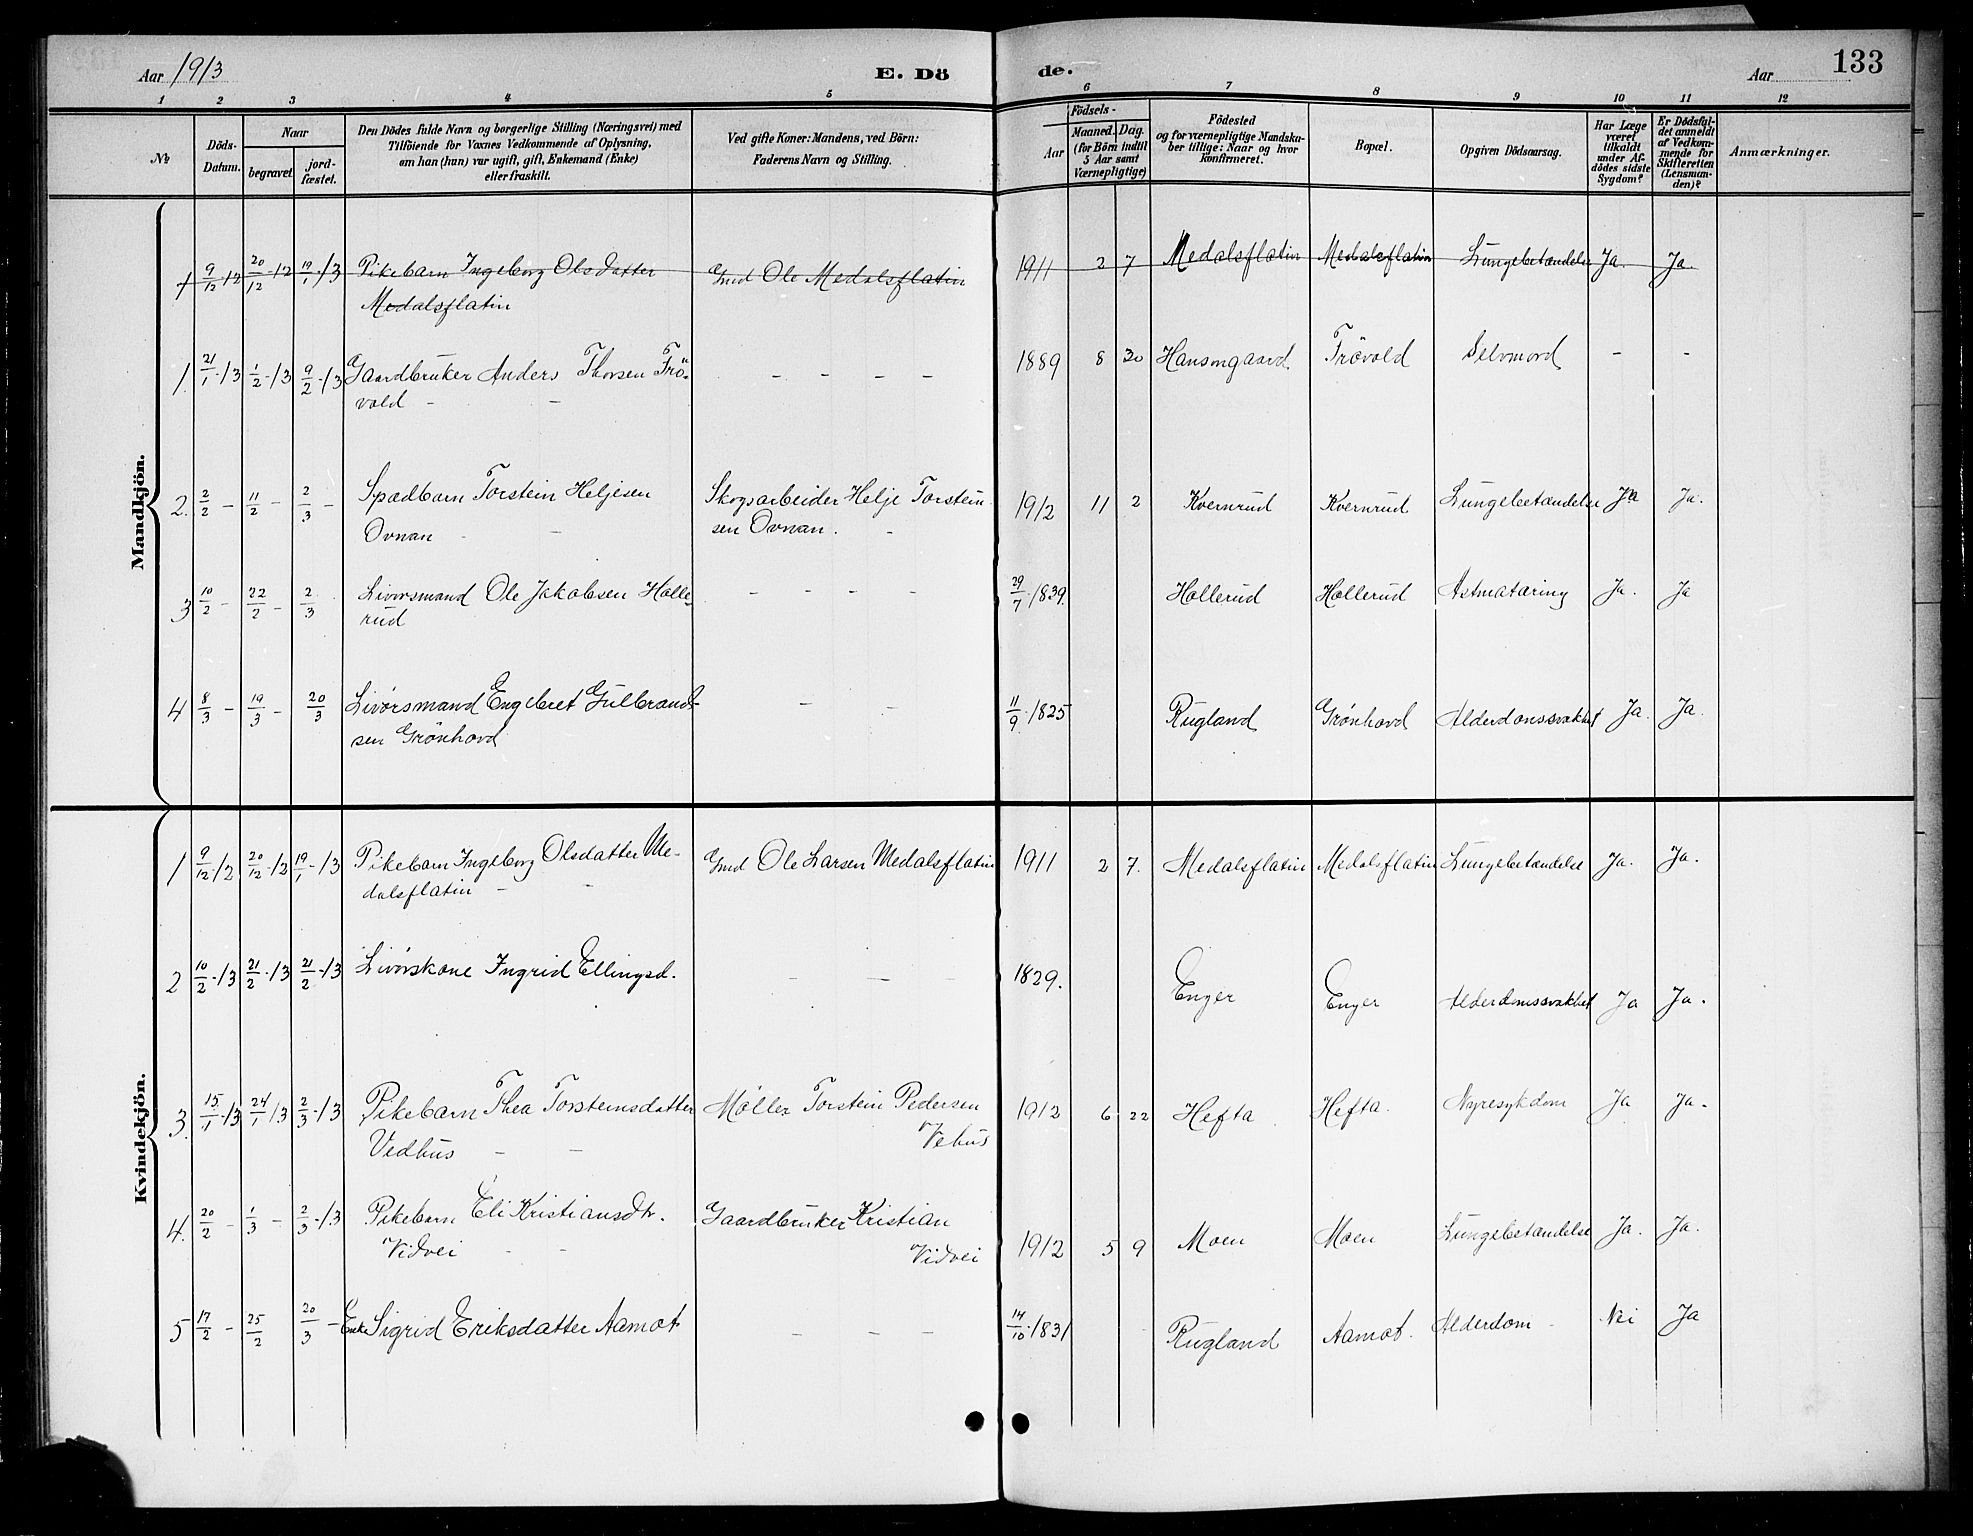 Aar 1913
E. Dö
de.
Aar
133
1 2 3 4 5 6 7 8 9 10 11 12
№
Döds-
Datum.
Naar
begravet
jord-
fæstet.
Den Dödes fulde Navn og borgerlige Stilling (Næringsvei) med
Tilföiende for Voxnes Vedkommende af Oplysning,
om han (hun) var ugift, gift, Enkemand (Enke)
eller fraskilt.
Ved gifte Koner: Mandens, ved Börn:
Faderens Navn og Stilling.
Födsels-
Aar
Maaned. Dag.
(for Börn indtil
5 Aar samt
Værnepligtige)
Födested
og for værnepligtige Mandska-
ber tillige: Naar og hvor
konfirmeret.
Bopæl.
Opgiven Dödsaarsag.
Har Læge
været
tilkaldt
under Af-
dödes sidste
Sygdom?
Er Dödsfal-
det anmeldt
af Vedkom-
mende for
Skifteretten
(Lensman-
den)?
Anmærkninger.
Mandkjön.
1 9/12-12 20/12-12 19/1-13 Pikebarn Ingeborg Olsdatter Gmd Ole Medalsflatin 1911 2 7 Medalsflatin Medalsflatin Lungebetændelse Ja. Ja.
Medalsflatin
1. 21/1-13 1/2-13 9/2-13 Gaardbruker Anders Thorsen Trö- - - - - 1889 8 30 Hansongaard Trövold Selvmord - -
vold - -
2. 2/2 - 11/2 - 2/3 - Spædbarn Torstein Heljesen Skogsarbeider Helje Torstein- 1912 11 2 Kvernrud Kvernrud Lungebetændelse Ja Ja.
Ovnan - - sen Ovnan. -
3 10/2 - 22/2 - 2/3 Livørsmand Ole Jakobsen Halle- - - - - 29/7-1839. Hollerud Hollerud Astmatæring Ja. Ja
rud
4 8/3 - 19/3 - 20/3 Livørsmand Engebret Gulbrand- - - 11/9-1825 Rugland Grønhovd Alderdomssvakhet Ja. Ja.
sen Grønhovd
Kvindekjön.
1 9/12-12 20/12-12 19/1-13 Pikebarn Ingeborg Olsdatter Me- Gmd Ole Larsen Medalsflatin 1911 2 7. Medalsflatin Medalsflatin Lungebetændelse Ja. Ja.
dalsflatin - -
2 10/2-13 21/2-13 21/2-13 Livørskone Ingrid Ellingsd. - - - 1829. Enger Enger Alderdomssvakhet Ja Ja.
3. 15/1-13 24/1 13 2/3-13 Pikebarn Thea Torsteinsdatter Møller Torstein Pedersen 1912 6 22 Hefta Hefta. Nyresykdom Ja Ja.
Vedhus - - Vehus
4. 20/2 - 1/3 - 2/3-13 Pikebarn Eli Kristiansdtr. Gaardbruker Kristian 1912 5 9 Moen Moen Lungebetændelse Ja. Ja.
Vidvei - - Vidvei
5 17/2 - 25/2 20/3 - Enke Sigrid Eriksdatter Aamot - - - 14/10-1831 Rugland Aamot. Alderdom - Nei Ja